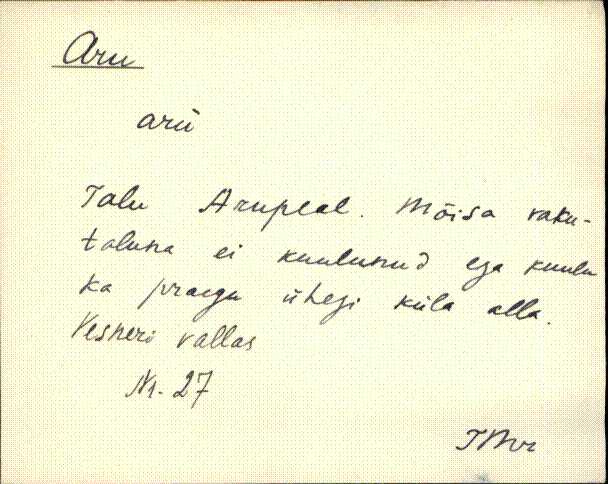 Aru
arù
Talu Arupeal. Mõisa raku-
taluna ei kuulunud ega kuulu
ka praegu ühegi küla alla.
Vesneri vallas
Nr. 27